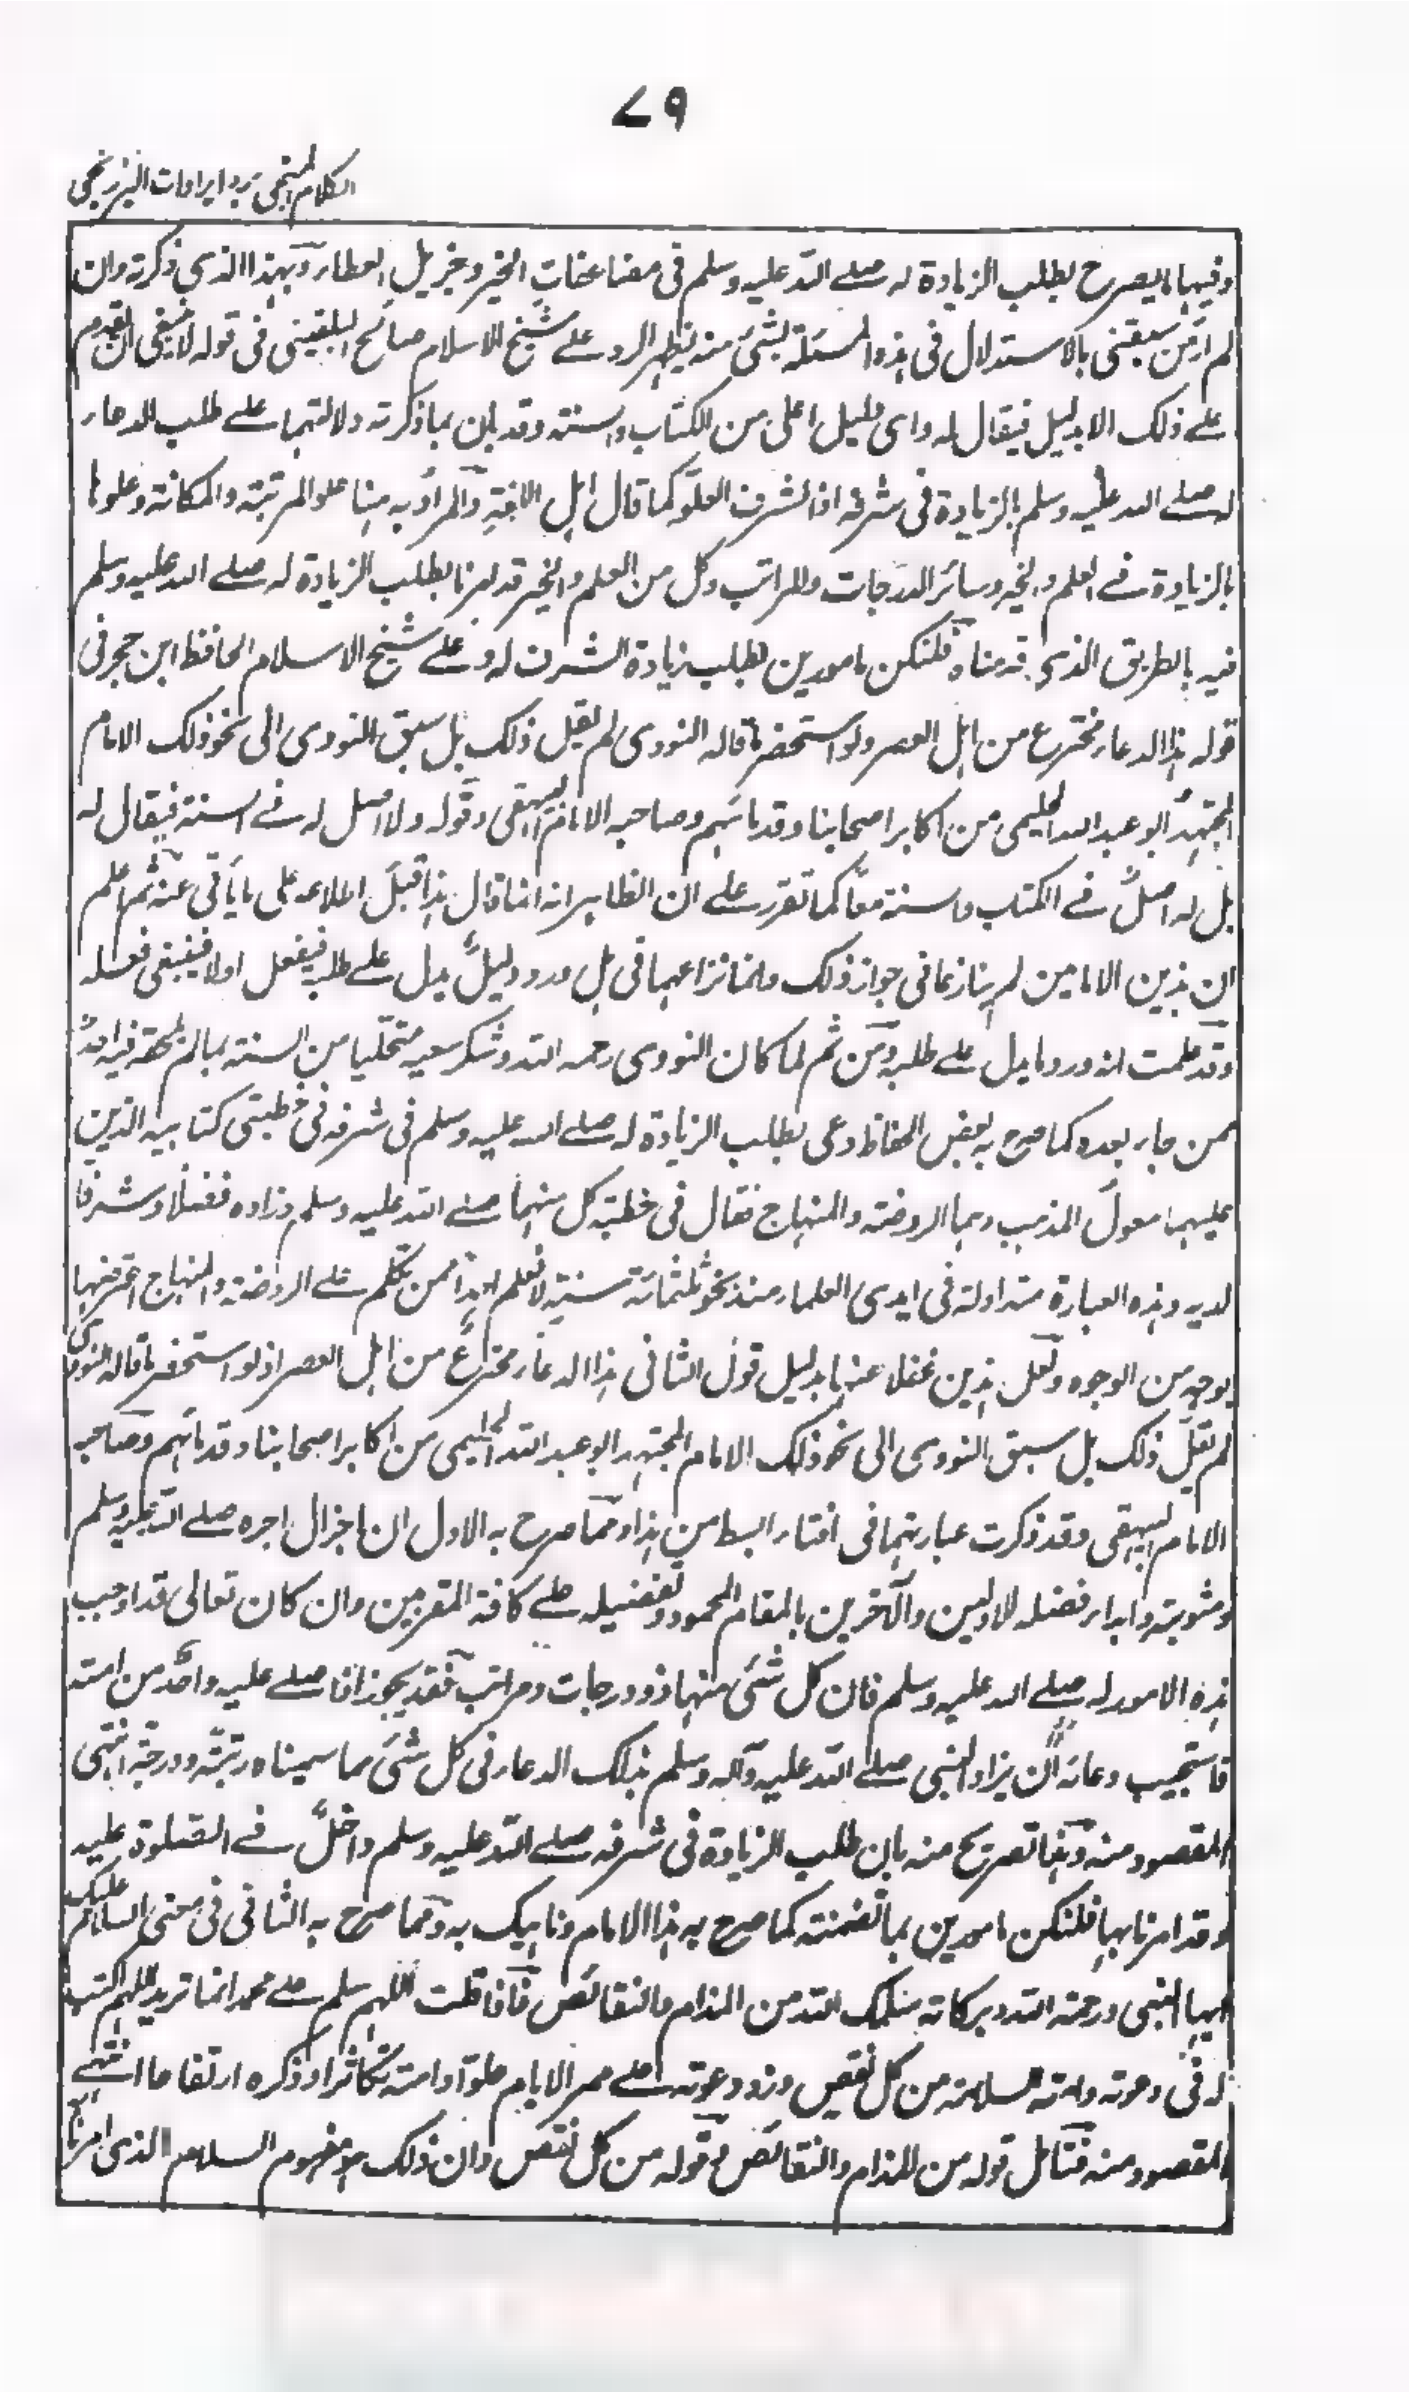 ٧٩
الكلام المنجي برد ايرادات البرزنجي
وفيها ما يصرح بطلب الزيادة له صلى الله عليه وسلم في مضاعفات الخير وجزيل العطاء وبهذا الذي ذكرته وان
لم ار من سبقني بالاستدلال في هذه المسئلة بشئ منه يظهر الرد على شيخ الاسلام صالح البلقيني في قوله لا ينبغي ان يقدم
على ذلك الا بدليل فيقال له واى دليل اعلى من الكتاب والسنة وقد بان بما ذكرته دلالتهما على طلب الدعاء
له صلى الله عليه وسلم بالزيادة في شرفه اذ الشرف العلو كما قال اهل اللغة والمراد به هنا علو المرتبة والمكانة وعلوها
بالزيادة في العلم والخير وسائر الدرجات والمراتب وكل من العلم والخير قد امرنا بطلب الزيادة له صلى الله عليه وسلم
فيه بالطريق الذي قدمناه فلنكن مامورين بطلب زيادة الشرف له وعلى شيخ الاسلام الحافظ ابن حجر في
قوله هذا الدعاء مخترع من اهل العصر ولو استحضر ما قاله النووى لم يقل ذلك بل سبق النووى الى نحو ذلك الامام
المجتهد ابو عبد الله الحليمى من اكابر اصحابنا وقدمائهم وصاحبه الامام البيهقى وقوله ولا اصل له في السنة فيقال له
بل له اصل في الكتاب والسنة معا كما تقرر على ان الظاهر انه انما قال هذا قبل اطلاعه على ما ياتي عنه ثم اعلم
ان هذين الامامين لم ينازعا في جواز ذلك وانما نزاعهما في هل ورد دليل يدل على طلبه فيفعل اولا فينبغي فعله
وقد علمت انه ورد ما يدل على طلبه ومن ثم لما كان النووى رحمه الله وشكر سعيه متحليا من السنة بما لم يلحقه فيه احد
ممن جاء بعده كما صرح به بعض الحفاظ دعى بطلب الزيادة له صلى الله عليه وسلم في شرفه في خطبتى كتابيه الذين
عليهما معول المذهب وهما الروضة والمنهاج فقال في خطبة كل منهما صلى الله عليه وسلم وزاده فضلا وشرفا
لديه وهذه العبارة متداولة في ايدى العلماء منذ نحو ثلثمائة سنة لا نعلم احدا ممن تكلم على الروضة والمنهاج اعترضها
بوجه من الوجوه ولعل هذين غفلا عنها بدليل قول الثاني هذا الدعاء مخترع من اهل العصر اذ لو استحضر ما قاله النووى
لم يقل ذلك بل سبق النووى الى نحو ذلك الامام المجتهد ابو عبد الله الحليمى من اكابر اصحابنا وقدمائهم وصاحبه
الامام البيهقى وقد ذكرت عبارتهما في افتاء ابسط من هذا ومما صرح به الاول ان اجزال اجره صلى الله عليه وسلم
ومثوبته وابداء فضله للاولين والآخرين بالمقام المحمود وتفضيله على كافة المقربين وان كان تعالى قد اوجب
هذه الامور له صلى الله عليه وسلم فان كل شئ منها ذو درجات ومراتب فقد يجوز اذا صلى عليه واحد من امته
فاستجيب دعائه ان يزاد النبى صلى الله عليه وآله وسلم بذلك الدعاء في كل شئ مما سميناه رتبة ودرجة انتهى
المقصود منه وهذا تصريح منه بان طلب الزيادة في شرفه صلى الله عليه وسلم داخل في الصلوة عليه
وقد امرنا بها فلنكن مامورين بما تضمنته كما صرح به هذا الامام وناهيك به ومما صرح به الثاني في معنى السلام عليك
ايها النبى ورحمة الله وبركاته سلمك الله من المذام والنقائص فاذا قلت اللهم سلم على محمد انما تريد اللهم اكتب
له في دعوته وامته السلامة من كل نقص وزد دعوته على ممر الايام علوا وامته تكاثرا وذكره ارتفاعا انتهى
المقصود منه فتامل قوله من المذام والنقائص وقوله من كل نقص وان ذلك هو مفهوم السلام الذى امرنا